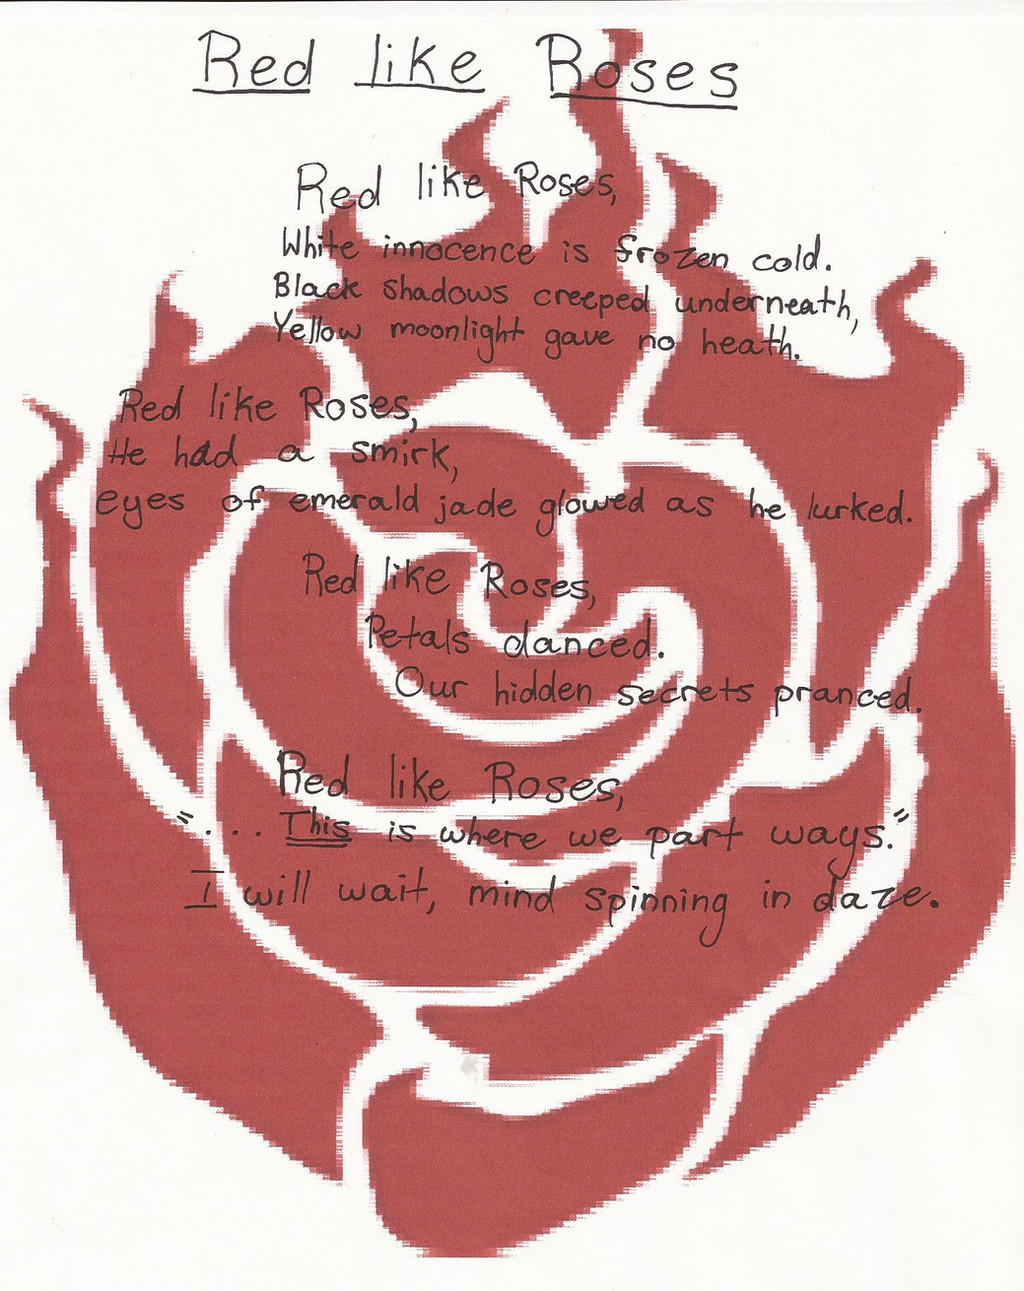 Red like Roses
Red like Roses,
White innocence is frozen cold.
Black shadows creeped underneath,
Yellow moonlight gave no heath.
Red like Roses,
He had a smirk,
eyes of emerald jade glowed as he lurked.
Red like Roses,
Petals danced.
Our hidden secrets pranced.
Red like Roses,
"... This is where we part ways."
I will wait, mind spinning in daze.